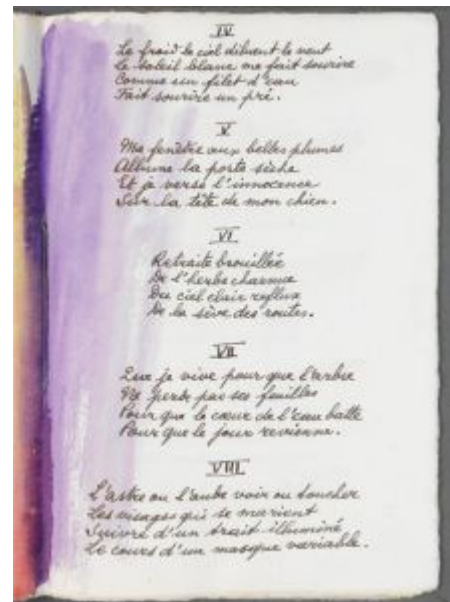 IV
Le froid le ciel diluent le vent
Le soleil blanc me fait sourire
Comme un filet d'eau
Fait sourire un pré.
V
Ma fenêtre aux belles plumes
Allume la porte sèche
Et je verse l'innocence
Sur la tête de mon chien.
VI
Retraite brouillée
De l'herbe charnue
Du ciel clair reflux
De la sève des routes.
VII
Que je vive pour que l'arbre
Ne perde pas ses feuilles
Pour que le cœur de l'eau batte
Pour que le jour revienne.
VIII
L'astre ou l'aube voir ou toucher
Les visages qui se marient
Suivre d'un trait illuminé
Le cours d'un masque variable.